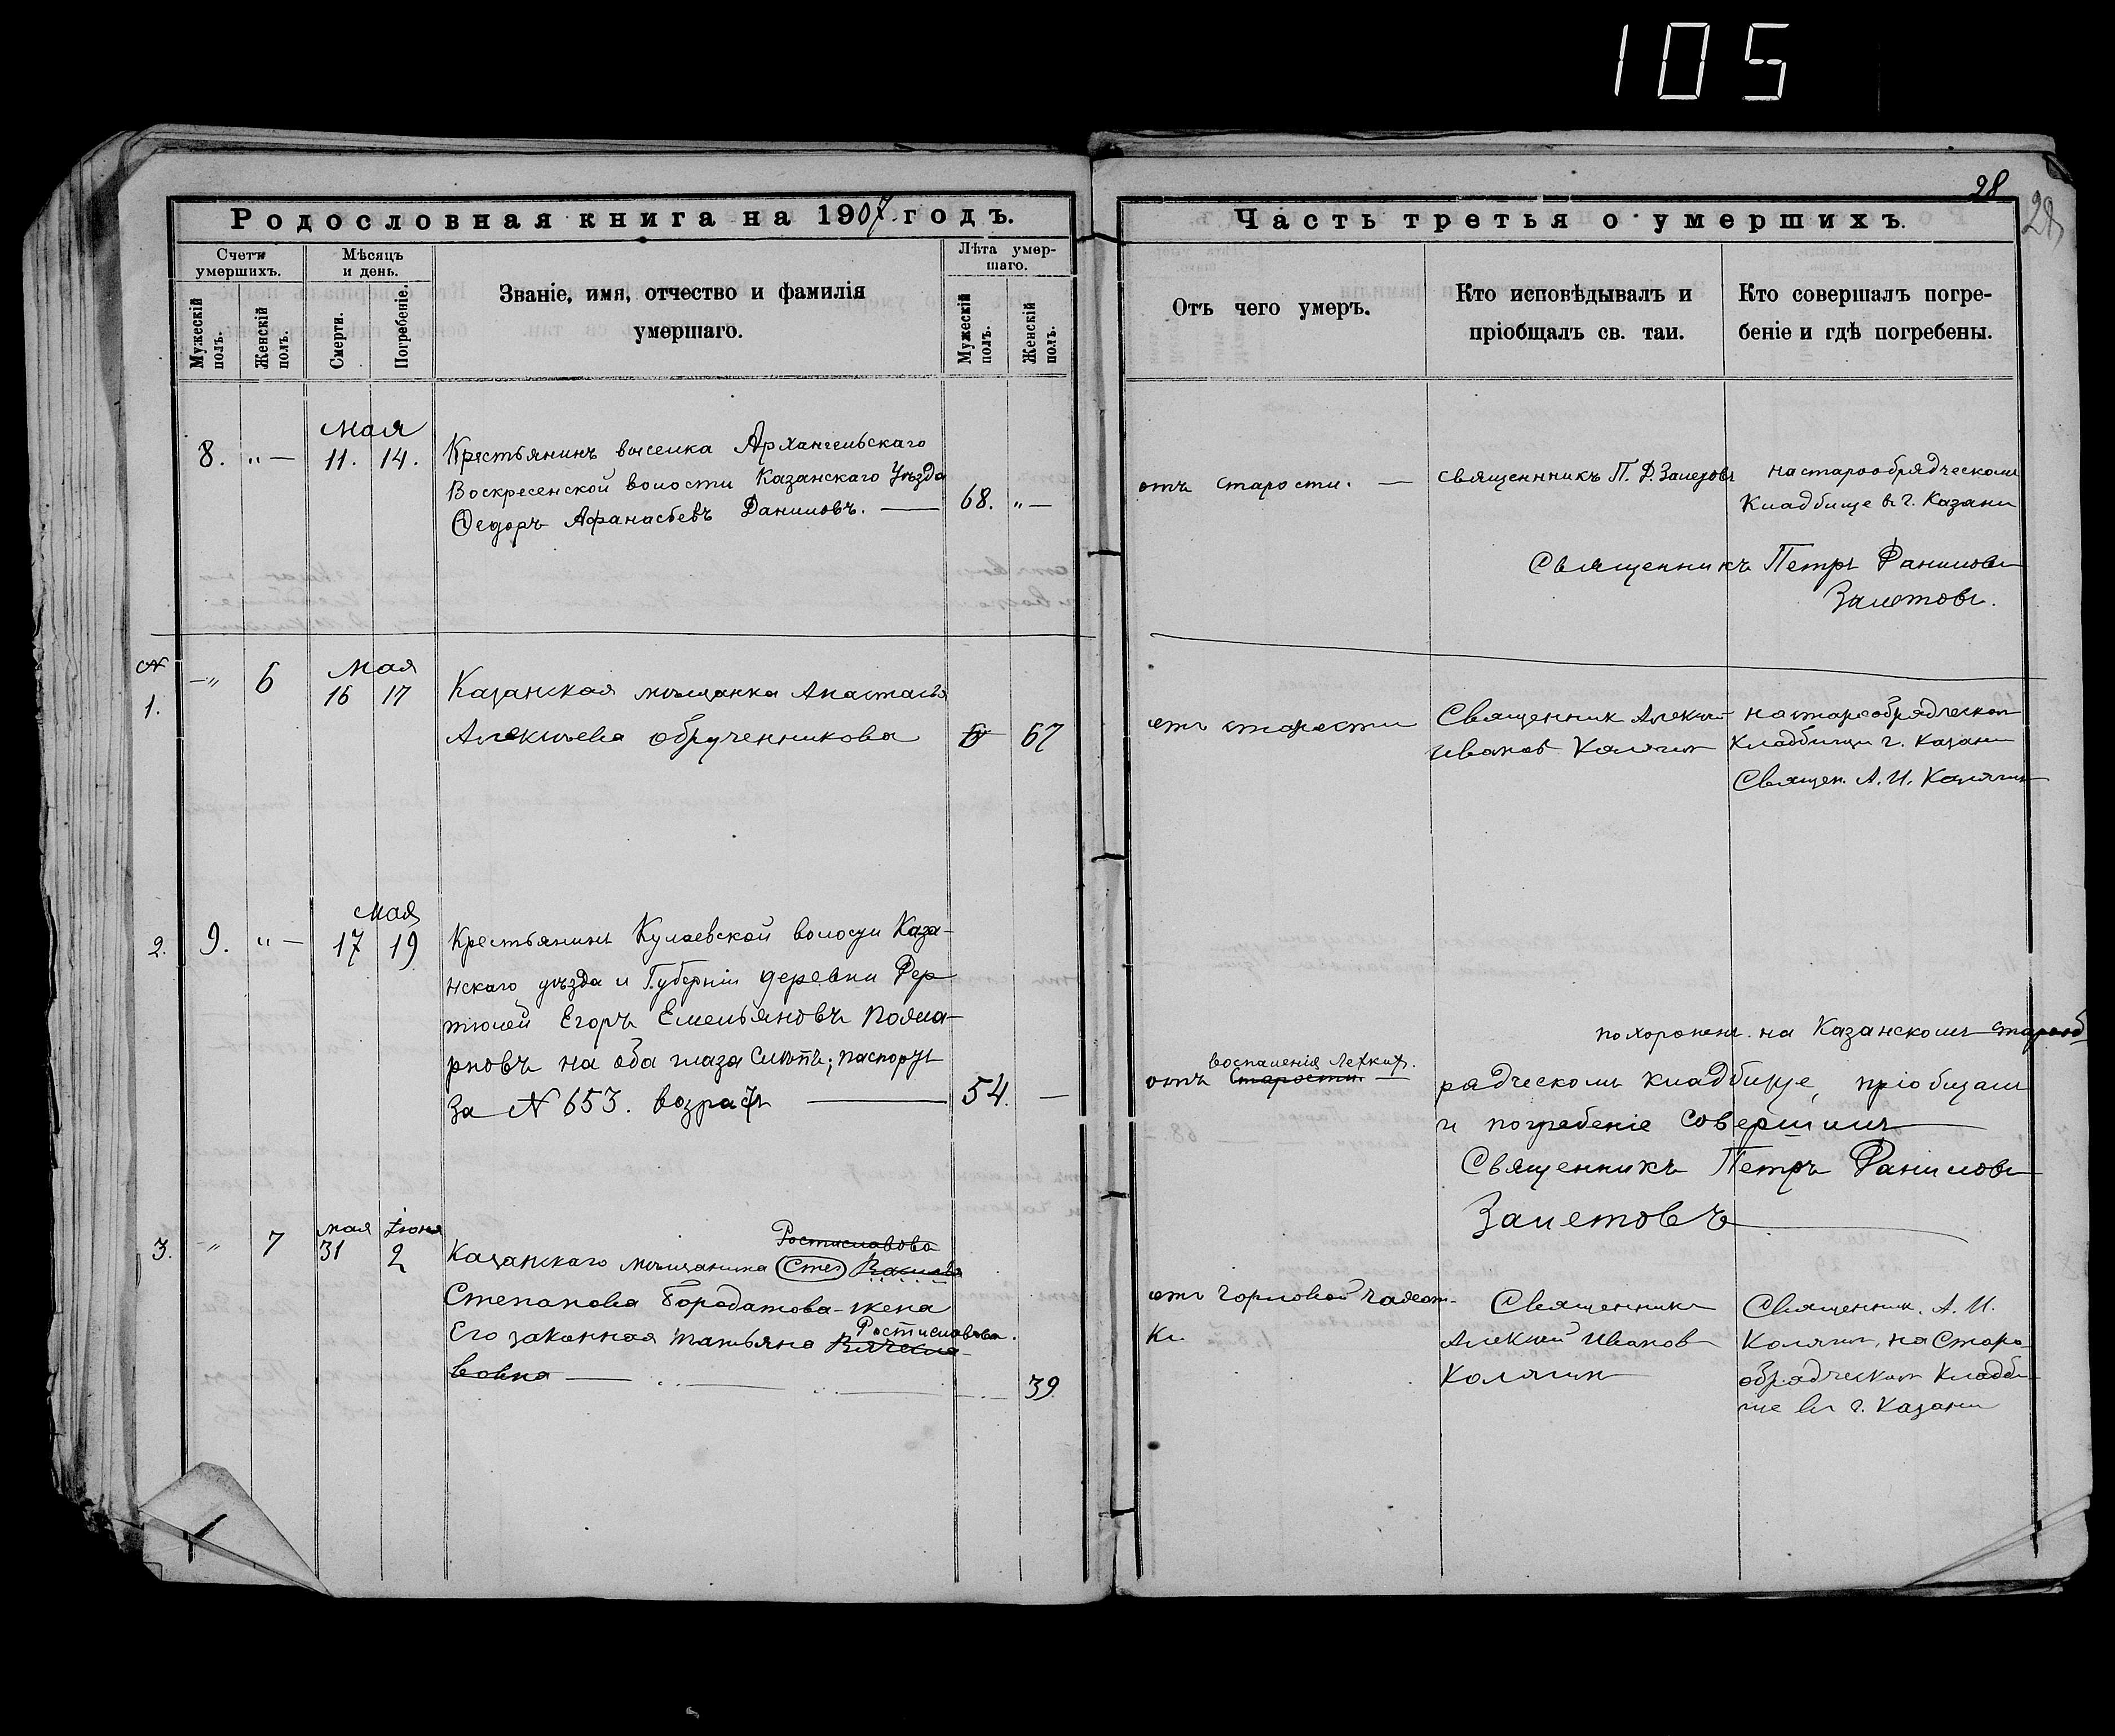 105
28
28
Родословная книга на 1907 годъ.
Счетъ умершихъ.
Мужескій полъ.
Женскій полъ.
Мѣсяцъ и день.
Смерти.
Погребеніе.
Званіе, имя, отчество и фамилія
умершаго.
Лѣта умер-
шаго.
Мужескій полъ.
Женскій полъ.
Часть третья о умершихъ.
Отъ чего умеръ.
Кто исповѣдывалъ и
пріобщалъ св. таи.
Кто совершалъ погре-
беніе и гдѣ погребены.
мая
8. „ — 11. 14.
Крестьянинъ выселка Архангельскаго
Воскресенской волости Казанскаго Уѣзда
Ѳедоръ Афанасьевъ Даниловъ. — 68. „ —
отъ старости. —
священникъ П. Д. Залетовъ
на старообрядческомъ
Кладбище въ г. Казани
Священникъ Петръ Даниловъ
Залетовъ.
№
1. — „ 6
мая
16 17
Казанская мѣщанка Анастасія
Алексѣева обрученникова 67
отъ старости
Священник Алексѣй
Иванов Калягин
на старообрядческом
Кладбищи г. Казани
Священ. А. И. Калягин
мая
2. 9. „ — 17 19
Крестьянинъ Кулаевской волости Каза-
нскаго уѣзда и Губерніи деревни
Егоръ Емельяновъ
на оба глаза слѣпъ; паспортъ
за № 653. возрастъ — 54. —
воспаленія Легких.
отъ старости. —
похороненъ на Казанскомъ старооб
рядческомъ кладбище, пріобщалъ
и погребеніе совершилъ
Священникъ Петръ Даниловъ
Залетовъ
3. „ 7
мая Іюня
31 2
Ростиславова
Казанскаго мѣщанина (Сте)
Степанова Бородатова - жена
Его законная татьяна
Ростиславова.
вовна — 39.
отъ горловой чахот-
ки
Священник
Алексѣй Иванов
Калягин
Священник. А. И.
Калягин, на Старо
обрядческом Кладби
ще въ г. Казани